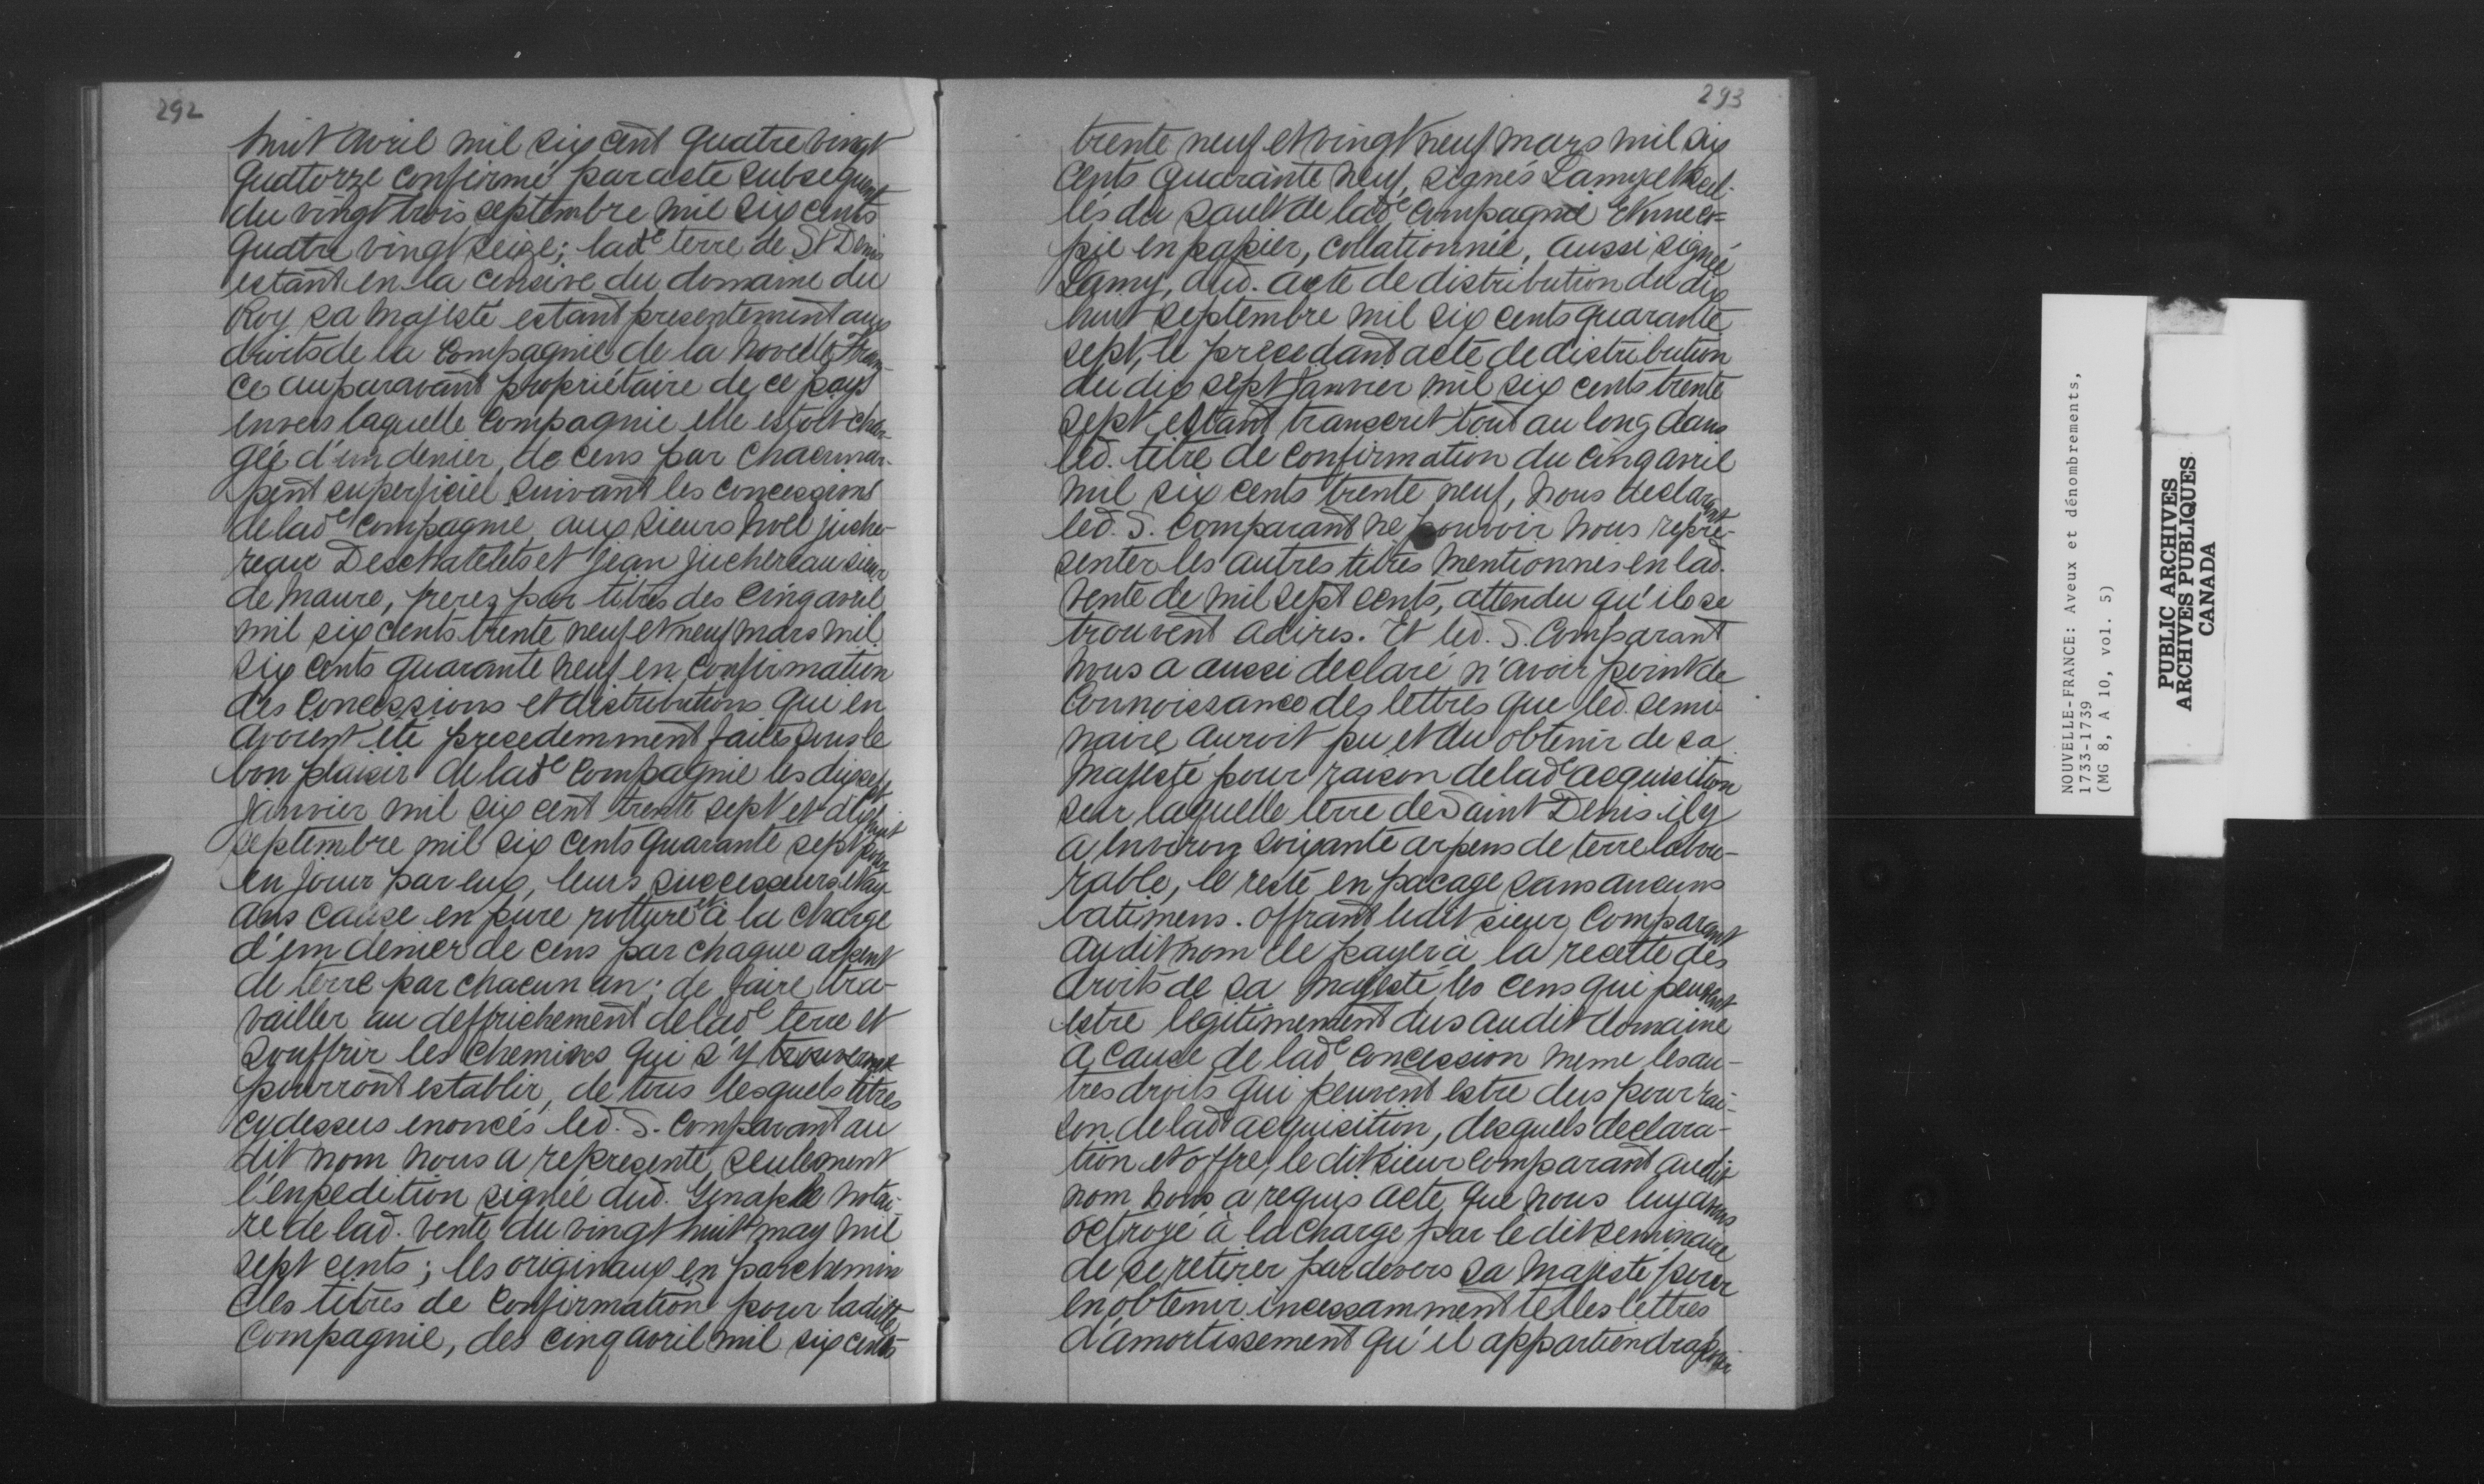 292
huit avril mil six cent quatre vingt
quatorze confirmé par acte subsequent
du vingt trois septembre mil six cents
quatre vingt seize; lade terre de St Denis
estant en la censive du domaine du
Roy sa majesté estant presentement aux
droits de la Compagnie de la novelle Fran-
ce auparavant propriétaire de ce pays
envers laquelle Compagnie elle estoit char-
gée d'un denier, de cens par chacun ar-
pent superficiel suivant les concessions
de lade Compagnie aux sieurs Noël juche-
reau Deschatelets et Jean Juchereau sieur
de Maure, freres par titres des cinq avril
mil six cents trente neuf et neuf mars mil
six cents quarante neuf en confirmation
des concessions et distributions qui en
avoient été precedemment faites sous le
bon plaisir de lade Compagnie les dix sept
Janvier mil six cent trente sept et dix huit
septembre mil six cents quarante sept pour
en jouir par eux, leurs successeurs et ay-
ans cause en pure rotture et à la charge
d'un denier de cens par chaque arpent
de terre par chacun an; de faire tra-
vailler au deffrichement de lade terre et
souffrir les chemins qui s'y
pourront establir, de tous lesquels titres
cydessus enoncés led. S. Comparant au
dit nom nous a representé seulement
l'enpedition signée dud. Genaple notai-
re de lad. vente du vingt huit may mil
sept cents; les originaux en parchemin
des titres de confirmation pour laditte
Compagnie, des cinq avril mil six cents
293
trente neuf et vingt neuf mars mil six
cents quarante neuf, signés Lamy et scel-
lés du sault de lade Compagnie Et une co=
pie en papier, collationnée, aussi signée
Lamy, dud. acte de distribution du dix
huit septembre mil six cents quarante
sept, le precedant acte de distribution
du dix sept Janvier mil six cents trente
sept estant transcrit tout au long dans
led. titre de confirmation du cinq avril
mil six cents trente neuf, nous declarant
led. S. Comparant ne pouvoir nous repre-
senter les autres titres mentionnés en lad.
vente de mil sept cents, attendu qu'ils se
trouvent adirés. Et led. S. Comparant
nous a aussi declaré n'avoir point de
Connoissance des lettres que led. semi-
naire auroit pu et du obtenir de sa
Majesté pour raison de lade acquisition
sur laquelle terre de Saint Denis il y
a environ soixante arpens de terre labou-
rable, le reste en pacage sans aucuns
batimens. Offrant ledit sieur Comparant
audit nom de payer à la recette des
droits de sa Majesté les cens qui peuvent
estre legitimement dus audit domaine
à cause de lade concession meme les au-
tres droits qui peuvent estre dus pour rai-
son de lade acquisition, desquels declara-
tion et offre, le dit sieur Comparant audit
nom nous a requis acte que nous luy avons
octroyé à la charge par le dit seminaire
de se retirer pardevers sa Majesté pour
en obtenir incessamment telles lettres
d'amortissement qu'il appartiendra
NOUVELLE-FRANCE: Aveux et dénombrements,
1733-1739
(MG 8, A 10, vol. 5)
PUBLIC ARCHIVES
ARCHIVES PUBLIQUES
CANADA